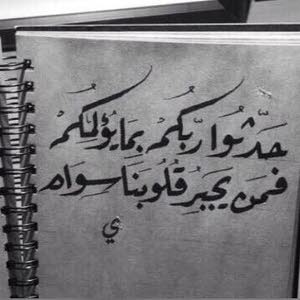 حَدِّثُوا رَبَّكُمْ بِمَا يُؤلِمُكُمْ
فَمَن يَجبِرُ قُلُوبَنا سِوَاه
ي